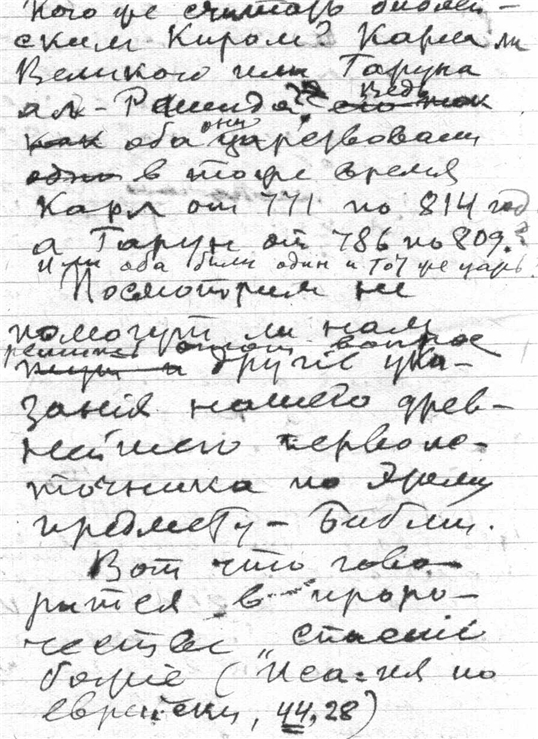 Кого же считать библей-
ским Киром? Карла ли
Великого или Гаруна
ал-Рашида? Ведь
они
как оба царствовали
одно в тоже время
Карл от 771 по 814 год
а Гарун от 786 по 809.?
Или оба были один и тот же царь?
Посмотрим не
помогут ли нам
решить этот вопрос
другіе ука-
занія нашего древ-
нейшего перво­ис-
точника по этому
предмету - Библии.
Вот что гово-
рится в проро-
честве „спасеніе
божіе (Исаия по
еврейски, 44,28)